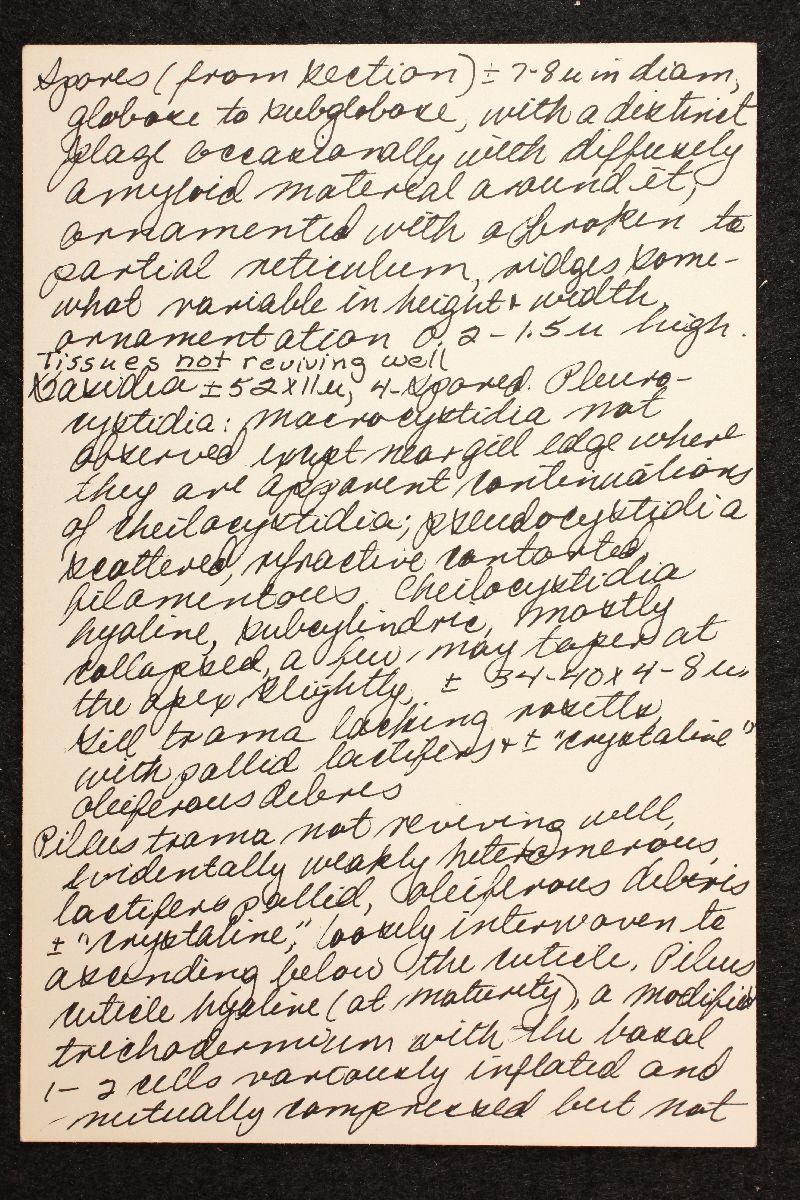 Spores (from section) ± 7-8 u in diam,
globose to subglobose, with a distinct
plage occasionally with diffusely
amyloid material around it,
ornamented with a broken to
partial reticulum, ridges some-
what variable in height & width,
ornamentation 0.2-1.5 u high.
Tissues not reviving well
Basidia ± 52x11u, 4-spored. Pleuro-
cystidia: macrocystidia not
observed except near gill edge where
they are apparent continuations
of cheilocystidia; pseudocystidia
scattered, refractive contorted,
filamentous. Cheilocystidia
hyaline, subcylindric, mostly
collapsed, a few may taper at
the apex slightly, ± 34-40 x 4-8 u.
Gill trama lacking rosettes,
with pallid lactifers & ± "crystaline"
oleiferous debris
Pileus trama not reviving well,
evidentally weakly heteromerous,
lactifers pallid, oleiferous debris
± "crystaline", loosely interwoven to
ascending below the cuticle. Pileus
cuticle hyaline (at maturity), a modified
trichodermium with the basal
1-2 cells variously inflated and
mutually compressed but not